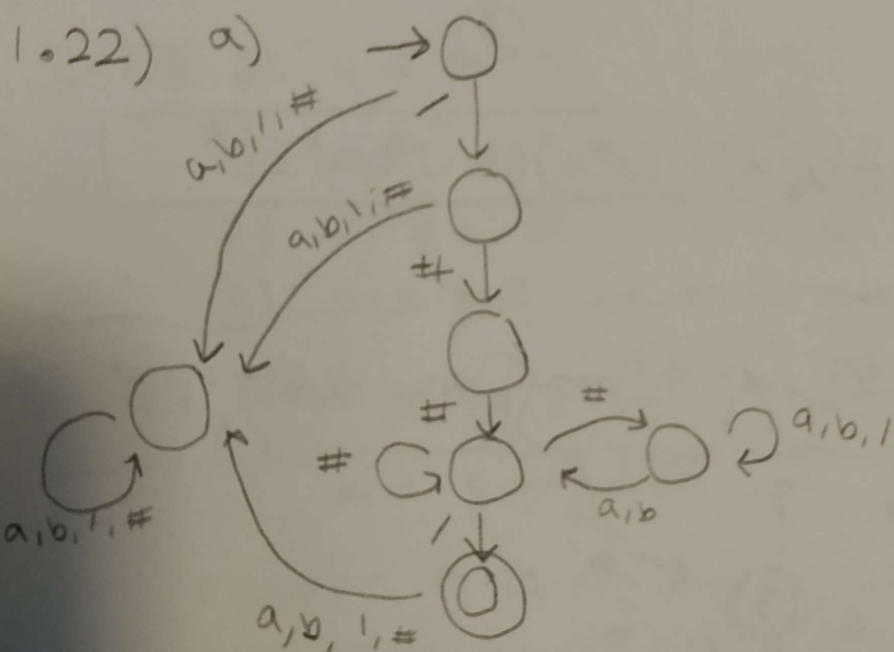 1.22) a)
a,b,/,#
/
a,b,/,#
#
#
#
#
a,b,/
a,b
a,b,/,#
/
a,b,/,#